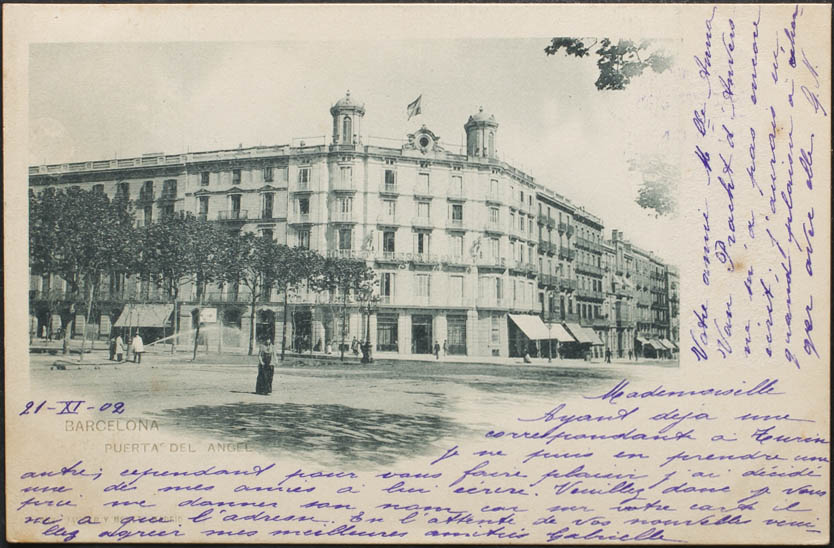 21-XI-02
BARCELONA
PUERTA DEL ANGEL
Mademoiselle
Ayant deja une
correspondante à Turin
je ne puis en prendre une
autre; cependant pour vous faire plaisir j'ai décidé
une de mes amies à lui écrire. Veuillez donc je vous
prie me donner son nom car sur votre carte il
n'y a que l'adresse. En l'attente de vos nouvelles veuil-
lez agréer mes meilleures amitiés Gabrielle
Votre amie M lle Anna
Van Pracht d'Anvers
ne m'a pas encore
écrit, j'aurais un
grand plaisir à échan-
ger avec elle G. N.